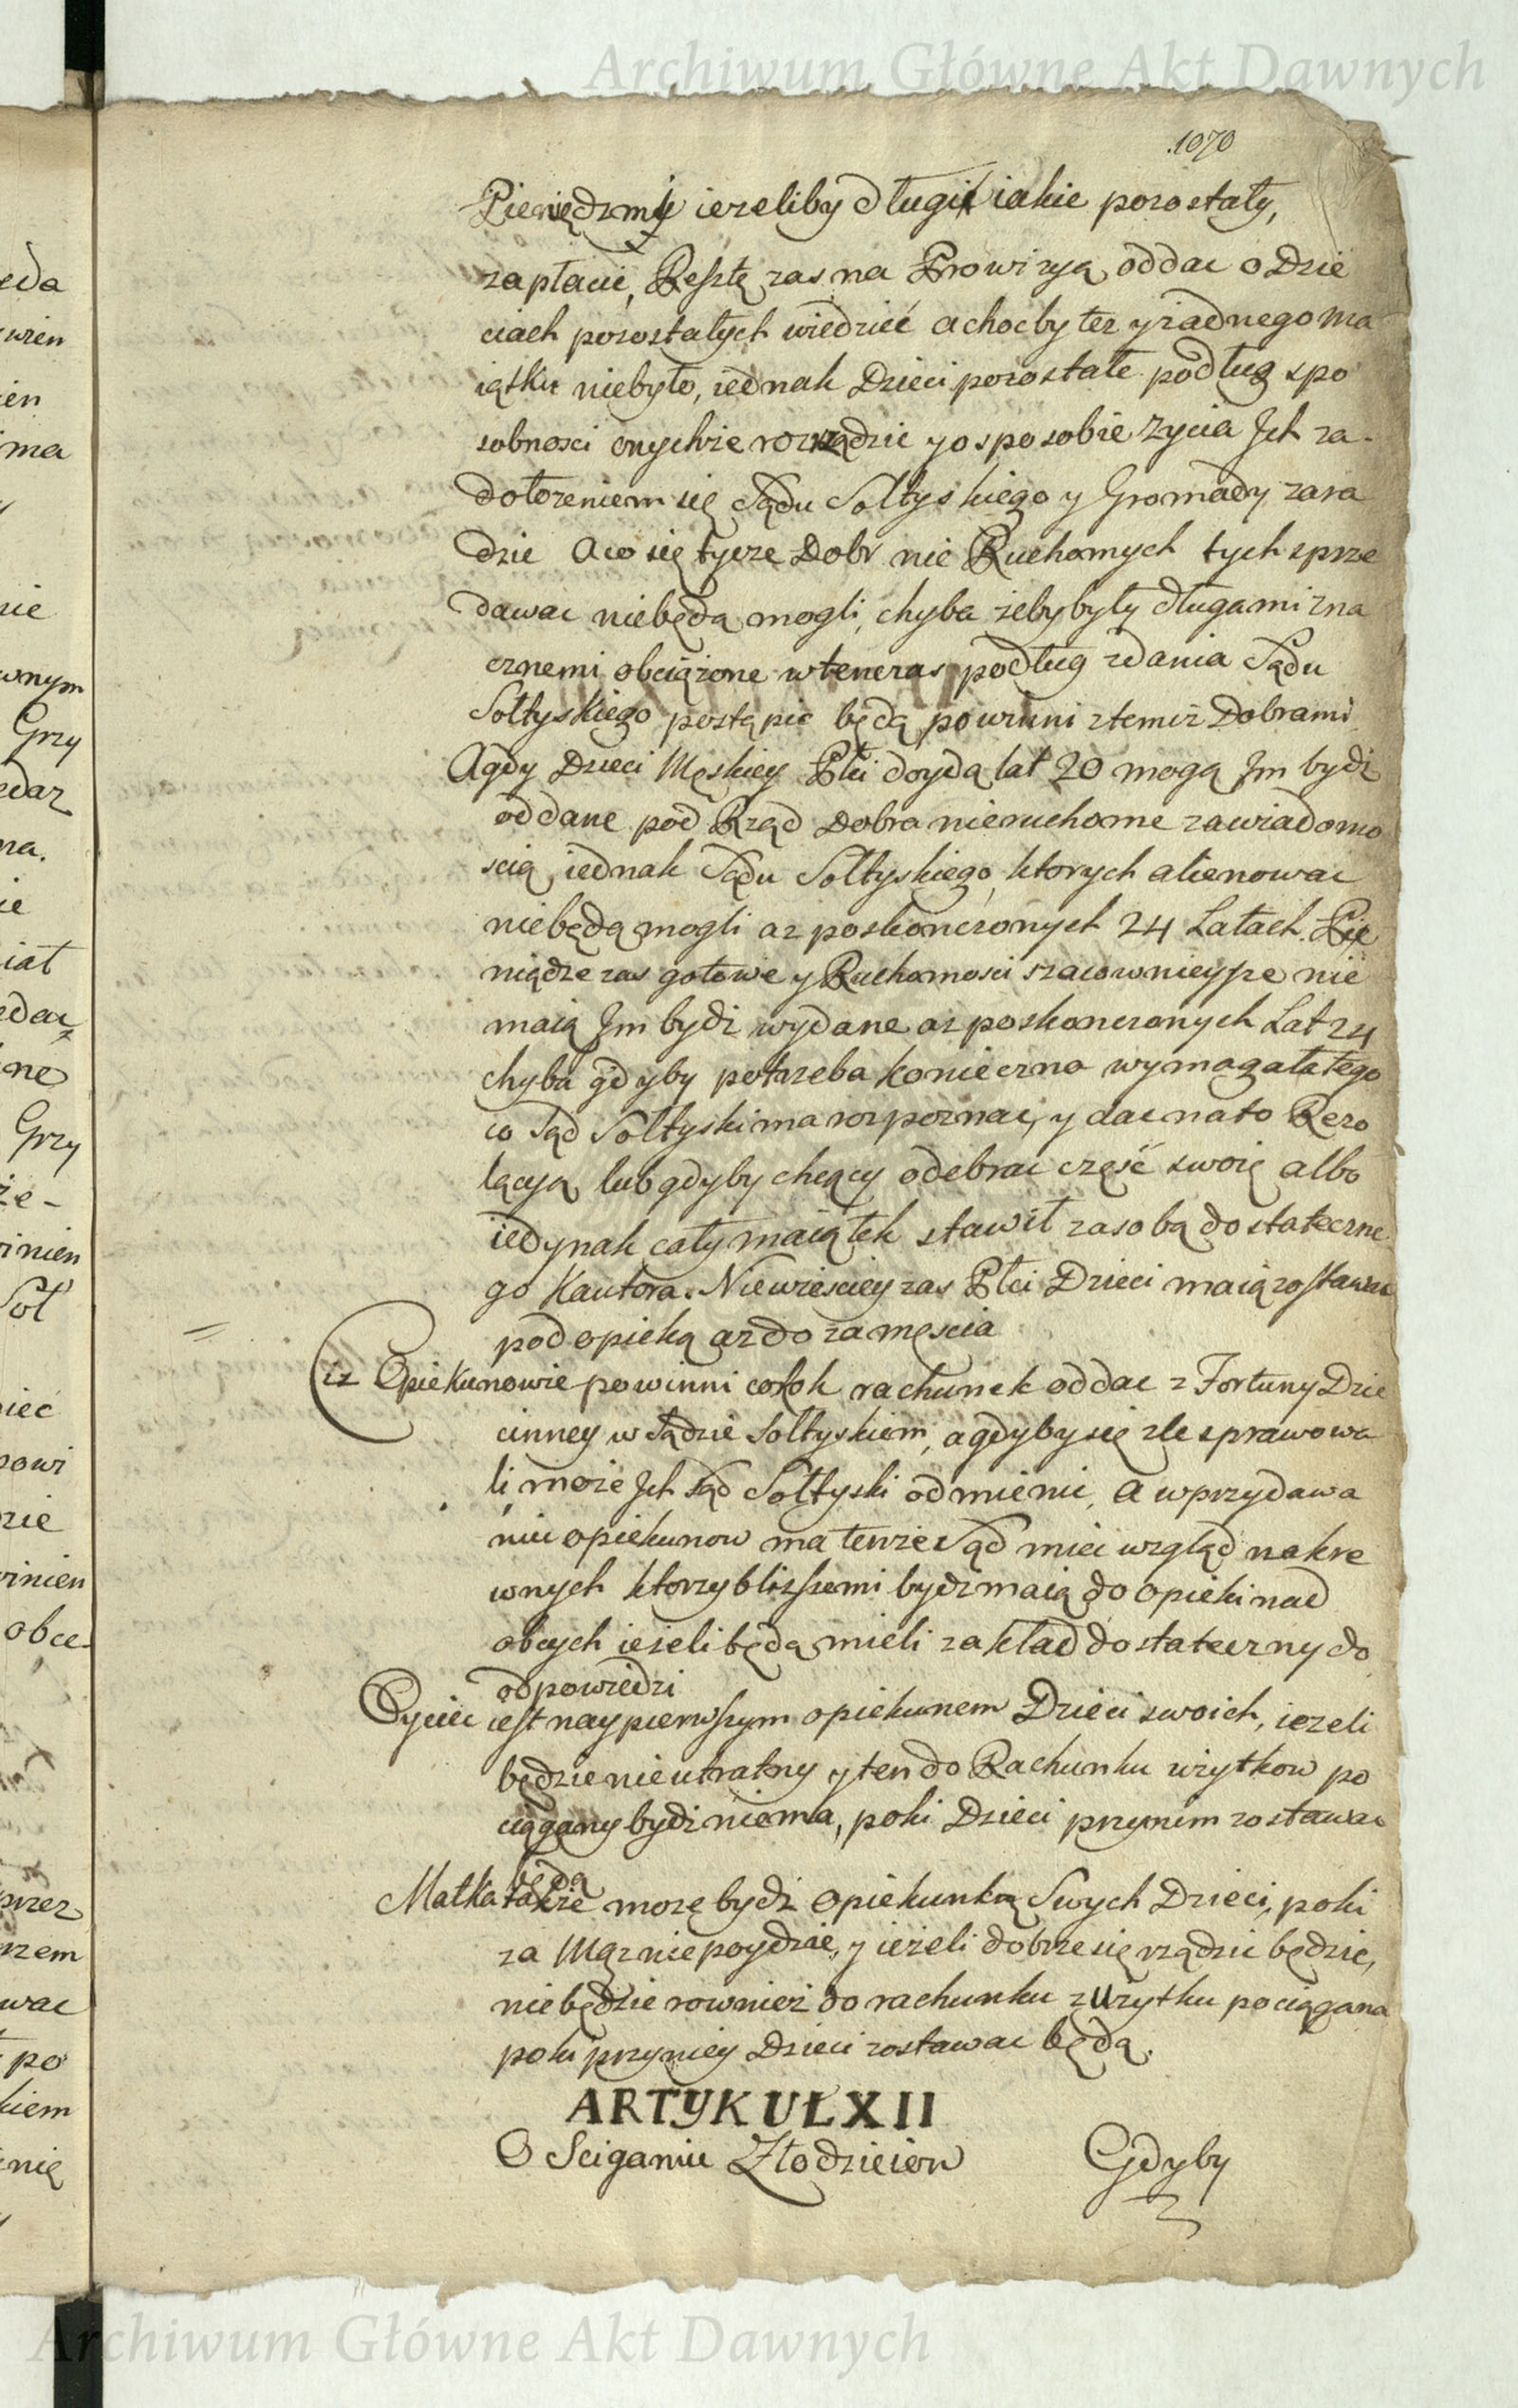 Archiwum Główne Akt Dawnych
1070
Pieniędzmi iezeliby długi iakie pozostały,
zapłacic, Resztę zas na Prowizyą oddac o Dzie
ciach pozostałych wiedzieć a chocby tez y żadnego ma
iątku niebyło, iednak Dzieci pozostałe podług spo
sobnosci onychże rozrządzic y o sposobie życia Jch za
dołozeniem się Sądu Sołtyskiego y Gromady zara
dzic A co się tycze Dobr nie Ruchomych tych sprze
dawac niebędą mogli, chyba żeby były długami zna
cznemi obciążone wtenczas podług zdania Sądu
Sołtyskiego postąpic będą powinni z temiż Dobrami
A gdy Dzieci Męskiey Płci doydą lat 20 mogą Jm bydź
oddane pod Rząd Dobra nieruchome za wiadomo
scią iednak Sądu Sołtyskiego, ktorych alienowac
niebędą mogli az po skonczonych 24 Latach. Pie
niądze zas gotowe y Ruchomosci szacownieysze nie
maią Jm bydź wydane az po skonczonych Lat 24
chyba gdyby potrzeba konieczna wymagała tego
co Sąd Sołtyski ma rozpoznac, y dac na to Rezo
lącyą lub gdyby chcący odebrac część swoię albo
iedynak cały maiątek stawił za sobą dostateczne
go Kautora. Niewiesciey zas Płci Dzieci maią zostawac
pod opieką az do zamęscia
12 Opiekunowie powinni corok rachunek oddac z Fortuny Dzie
cinney w Sądzie Sołtyskiem, a gdyby się zle sprawowa
li może Jch Sąd Sołtyski odmienic, A w przydawa
niu opiekunow ma tenze Sąd miec wzgląd na kre
wnych ktorzy bliższemi bydź maią do opieki nad
obcych ieżeli będą mieli zakład dostateczny do
odpowiedzi
Oyciec iest naypierwszym opiekunem Dzieci swoich, iezeli
będzie nieutratny y ten do Rachunku użytkow po
ciągany bydź niema, poki Dzieci przy nim zostawac
będą
Matka także może bydź Opiekunką Swych Dzieci, poki
za Mąz nie poydzie, y ieżeli dobrze się rządzic będzie,
nie będzie rownież do rachunku z Użytku pociągana
poki przy niey Dzieci zostawac będą.
ARTYKUŁ XII
O Sciganiu Złodzieiow
Gdyby
Archiwum Główne Akt Dawnych